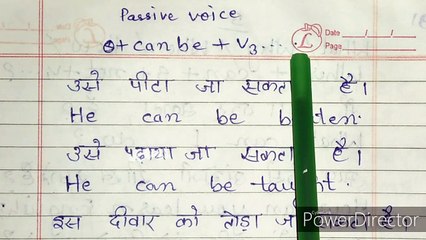 Passive voice
O+ can be + V₃...
Date / /
Page
उसे पीटा जा सकता है।
He can be beaten.
उसे पढ़ाया जा सकता है।
He can be taught.
इस दीवार को तोड़ा
PowerDirector